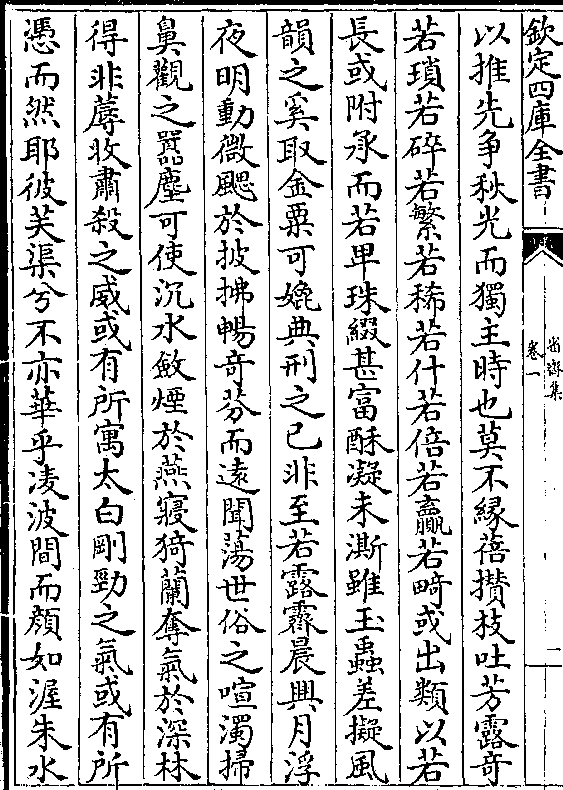 欽定四庫全書
省齋集
卷一
一
以推先争秋光而獨主時也莫不緣蓓攅枝吐芳露奇
若瑣若碎若繁若稀若什若倍若贏若畸或出類以若
長或附承而若卑珠綴甚富酥凝未澌雖玉蟲差擬風
韻之奚取金粟可媲典刑之已非至若露霽晨興月浮
夜明動微颸於披拂暢奇芬而遠聞蕩世俗之喧濁掃
鼻觀之嚣塵可使沉水斂煙於燕寢猗蘭奪氣於深林
得非蓐收肅殺之威或有所寓太白剛勁之氣或有所
憑而然耶彼芙渠兮不亦華乎凌波間而顔如渥朱水